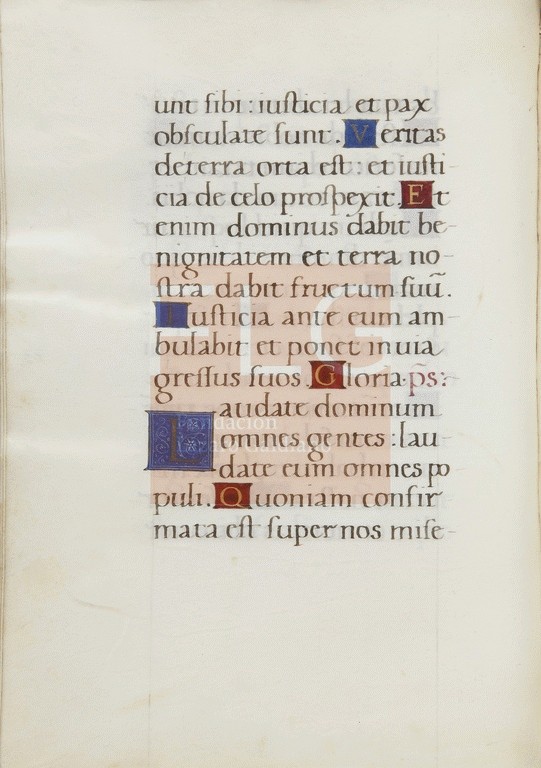 unt sibi : iusticia et pax
obsculate sunt. Veritas
deterra orta est : et iusti
cia de celo prospexit. Et
enim dominus dabit be-
nignitatem et terra no-
stra dabit fructum suū.
Iusticia ante eum am-
bulabit et ponet in uia
gressus suos. Gloria. p̄s:
Laudate dominum
omnes gentes : lau-
date eum omnes po
puli. Quoniam confir
mata est super nos mise-
FLG
Fundación
Lázaro Galdiano